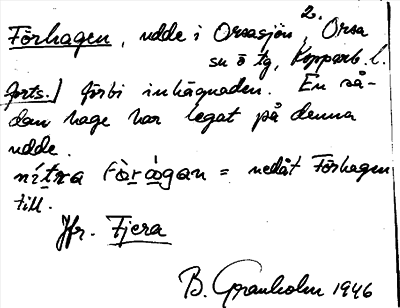 2.
Förhagen, udde i Orsasjön, Orsa
sn ö tg, Kopparb. l.
forts.] förbi inhägnaden. En så-
dan hage har legat på denna
udde.
nítra fàrágan = nedåt Förhagen
till.
Jfr. Fjera
B. Granholm 1946